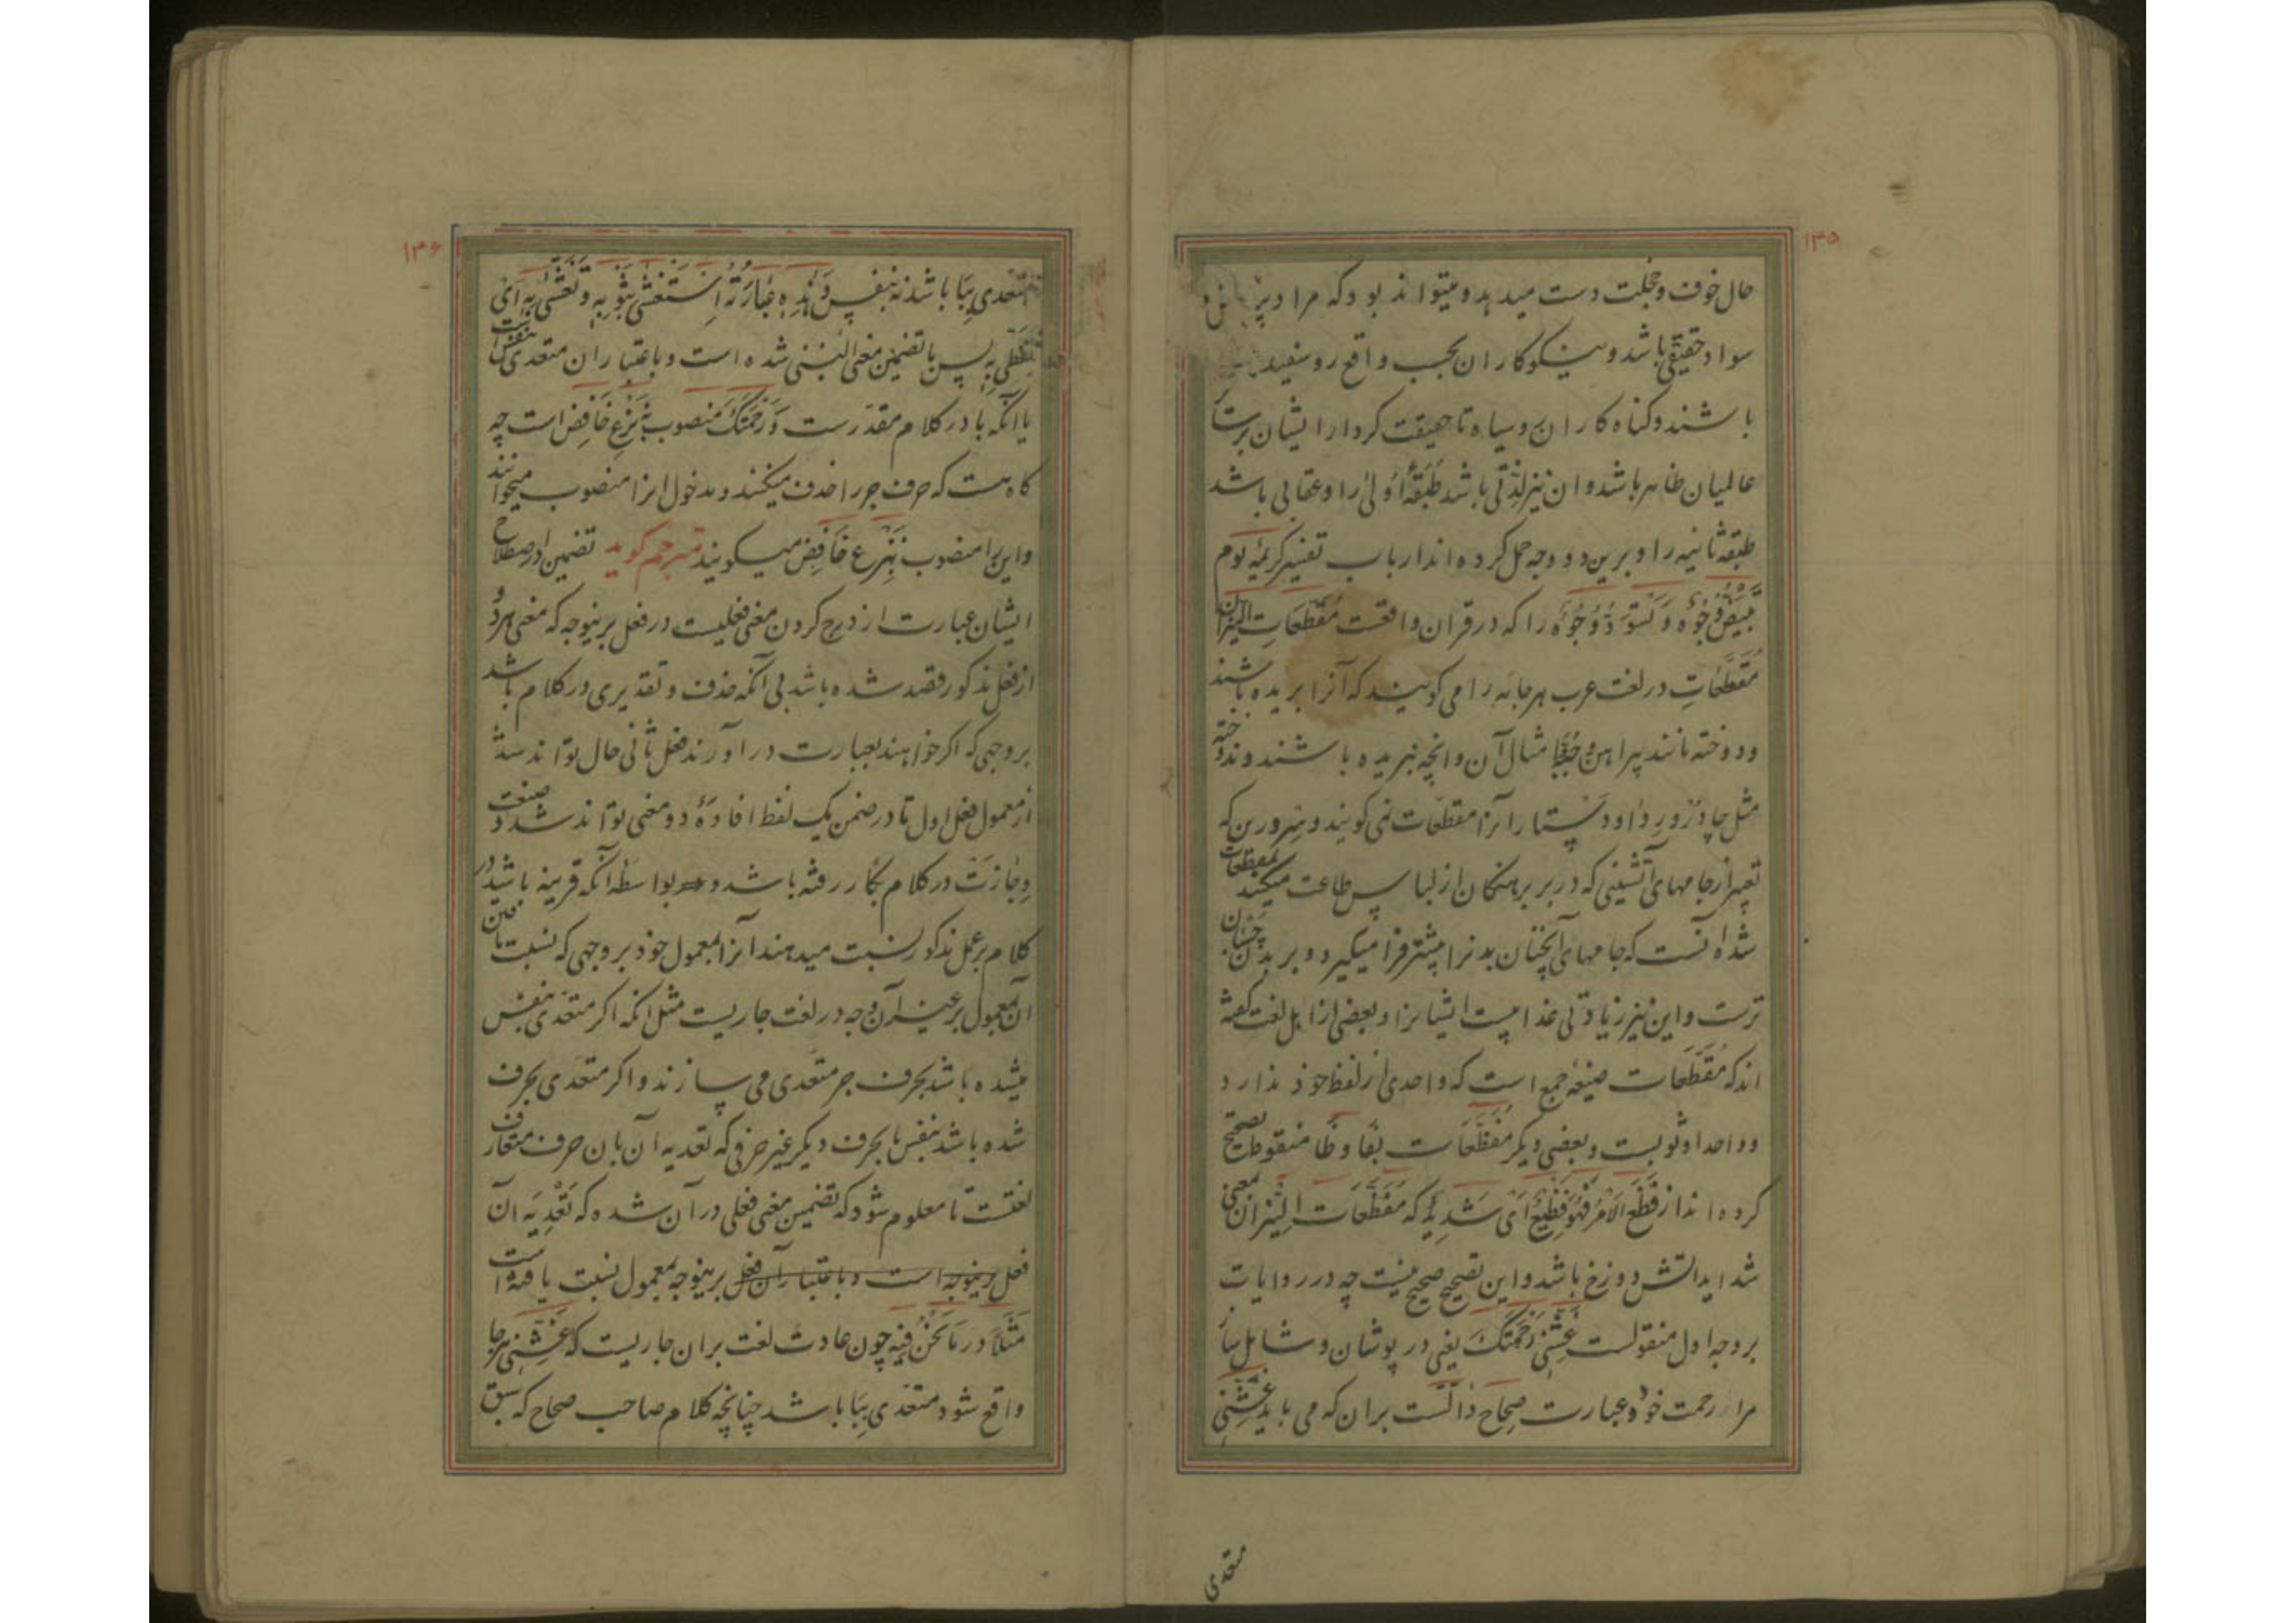 ۱۳۵
حال خوف و خجلت دست میدهد و میتواند بود که مراد
سواد حقیقی باشد و نیکوکاران بحسب واقع روسفید
باشند و کناه کاران روسیاه تا حقیقت کردار ایشان بر
عالمیان ظاهر باشد و ان نیز لذتی باشد طَبَقهٔ اُولیٰ را و عقابی باشد
طبقه ثانیه را و برین دو وجه حمل کرده اند ارباب تفسیر کریمهٔ یوم
تَبْیَضُّ وُجُوْهٌ وَ تَسْوَدُّ وُجُوْهٌ را که در قران واقعست مُقَطَّعَاتِ النِّیْرَانِ
مُقَطَّعَاتِ در لغت عرب هر جامه را می کویند که آنرا بریده باشند
و دوخته مانند پیراهن و جُبّه و امثال آن و انچه نبریده باشند و ندوخته
مثل چادر و رِدا و دستار آنرا مقطعات نمی کویند و سِر درین که
تعبیر از جامهای آتشینی که در بر برهنکان از لباس طاعت میکنند بمقطعات
شده آنست که جامهای آنچنان بدنرا بیشتر فرا میکیرد و بر بدن چسبان
ترست و این نیز زیادتی عذابیست ایشانرا و بعضی از اهل لغت کفته
اند که مُقَطَّعَات صیغهٔ جمع است که واحدی از لفظ خود ندارد
و واحد او ثوبست و بعضی دیکر مُفَظَّعَات بفا و ظا منقوطه تصحیح
کرده اند از فَظُعَ الاَمْرُ فَهُوَ فَظِیْعٌ اَیْ شَدِیْدٌ که مُفَظَّعَات النِّیْرَان بمعنی
شداید اتش دوزخ باشد و این تصحیح صحیح نیست چه در روایات
بر وجه اول منقولست غَشِّنِیْ رَحْمَتَکَ یعنی در پوشان و شامل ساز
مرا رحمت خود و عبارت صِحَاح دالست بران که می باید غَشِّنِیْ
متعدی
۱۳۶
متعدی بِبَا باشد نه بنفس وَ هٰذِهِ عِبَارَتُهُ اِسْتَغْشٰی بِثَوْبِهِ وَ تَغَشّٰی بِهِ اَیْ
تَغَطّٰی بِهِ پس یا تضمین معنی اَلْبِسْنِی شده است و باعتبار ان متعدی بنفس است
یا انکه با در کلام مقدرست وَ رَحْمَتَکَ منصوب بِنَزْعِ خَافِض است چه
کاه هست که حرف جر را حذف میکنند و مدخول انرا منصوب میخوانند
و این را منصوب بِنَزْعِ خَافِض میکویند مترجم کوید تضمین در اصطلاح
ایشان عبارت از درج کردن معنی فعلیست در فعل برینوجه که معنی هر دو
از فعل مذکور قصد شده باشد بی آنکه حذف و تقدیری در کلام باشد
بر وجهی که اکر خواهند بعبارت در اورند فعل ثانی حال تواند شد
از معمول فعل اول تا در ضمن یک لفظ افادهٔ دو معنی تواند شد و صنعت
وِجازت در کلام بکار رفته باشد و بواسطه آنکه قرینه باشد در
کلام بر عمل مذکور نسبت میدهند آنرا بمعمول خود بر وجهی که نسبت ما فیْ
آن معمول بر غیر آن وجه در لغت جاریست مثل انکه اکر متعدی بنفس
میشده باشد بحرف جر متعدی می سازند و اکر متعدی بحرف
شده باشد بنفس یا بحرف دیکر غیر حرفی که تعدیه آن بان حرف متعارف
لغتست تا معلوم شود که تضمین معنی فعلی در آن شده که تَعْدِیَه آن
فعل برینوجه است و باعتبار آن فعل برینوجه بمعمول نسبت یافته است
مَثَلًا در مَا نَحْنُ فِیْهِ چون عادت لغت بران جاریست که غَشِّنِیْ هر جا
واقع شود متعدی بِبَا باشد چنانچه کلام صاحب صحاح که سبق